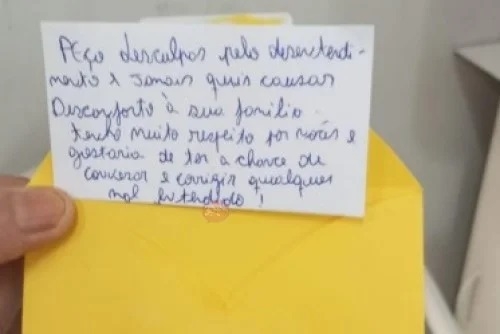 Peço desculpas pelo desentendi-
mento e Jamais quis causar
Desconforto à sua família.
tenho muito respeito por vocês e
gostaria de ter a chance de
conversar e corrigir qualquer
mal Entendido!